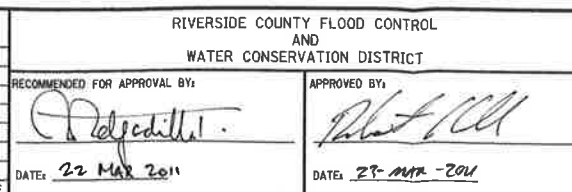 RIVERSIDE COUNTY FLOOD CONTROL
AND
WATER CONSERVATION DISTRICT
RECOMMENDED FOR APPROVAL BY:
DATE: 22 MAR 2011
APPROVED BY:
DATE: 23-MAR-2011